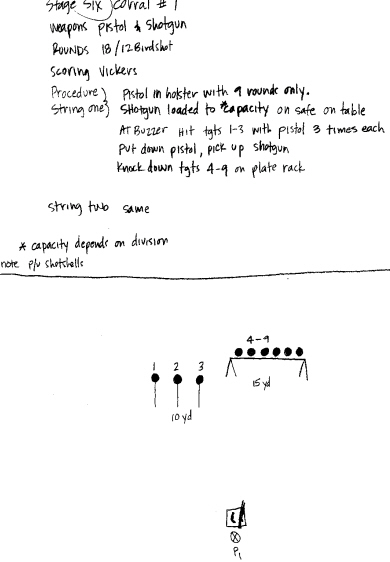 Stage Six) Corral # 1
Weapons Pistol & Shotgun
Rounds 18/12 Birdshot
Scoring Vickers
Procedure) Pistol in holster with 9 rounds only.
String one) Shotgun loaded to *capacity on safe on table
At Buzzer Hit tgts 1-3 with pistol 3 times each
Put down pistol, pick up shotgun
Knock down tgts 4-9 on plate rack
String two same
* capacity depends on division
note P/U shotshells
4-9
1 2 3
15 yd
10 yd
P1